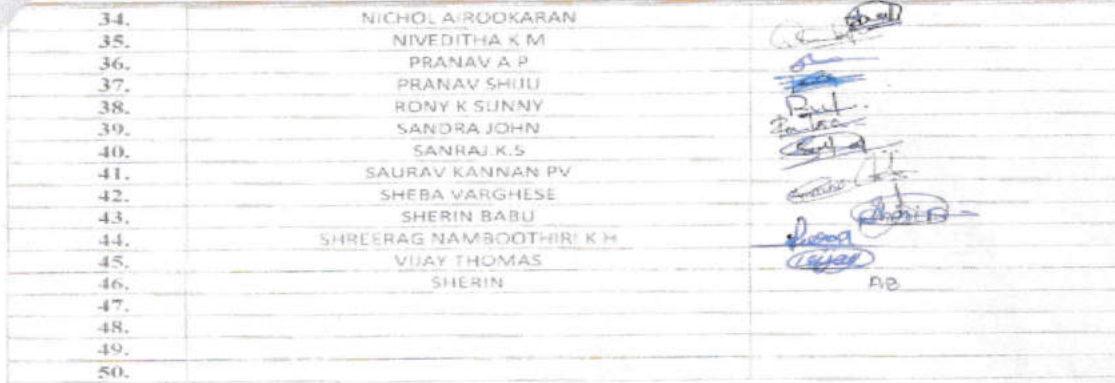 34. NICHOL AIROOKARAN
35. NIVEDITHA K M
36. PRANAV A P
37. PRANAV SHIJU
38. RONY K SUNNY
39. SANDRA JOHN
40. SANRAJ.K.S
41. SAURAV KANNAN PV
42. SHEBA VARGHESE
43. SHERIN BABU Sherin
44. SHREERAG NAMBOOTHIRI K H
45. VIJAY THOMAS Vijay
46. SHERIN AB
47.
48.
49.
50.